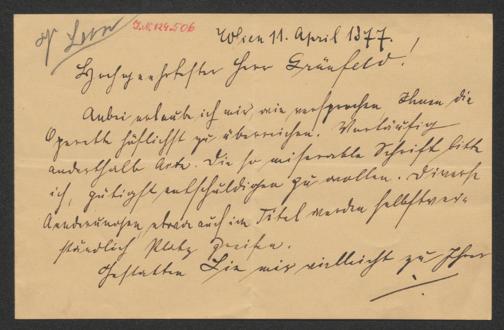 Leon I.N. 124.506
Wien 11. April 1877.
Hochgeehrtester Herr Grünfeld!
Anbei erlaube ich mir wie versprochen Ihnen die
Operette höflichst zu überreichen. Vorläufig
anderthalb Acte. Die so miserable Schrift bitte
ich, gütigst entschuldigen zu wollen. Diverse
Aenderungen, etwa auch im Titel werden selbstver-
ständlich Platz greifen.
Gestatten Sie mir vielleicht zu Ihrer